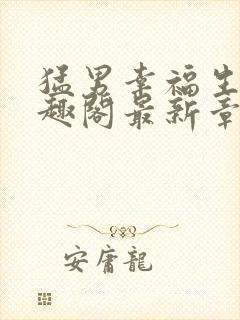 猛男幸福生
趣阁最新章
安唐龍